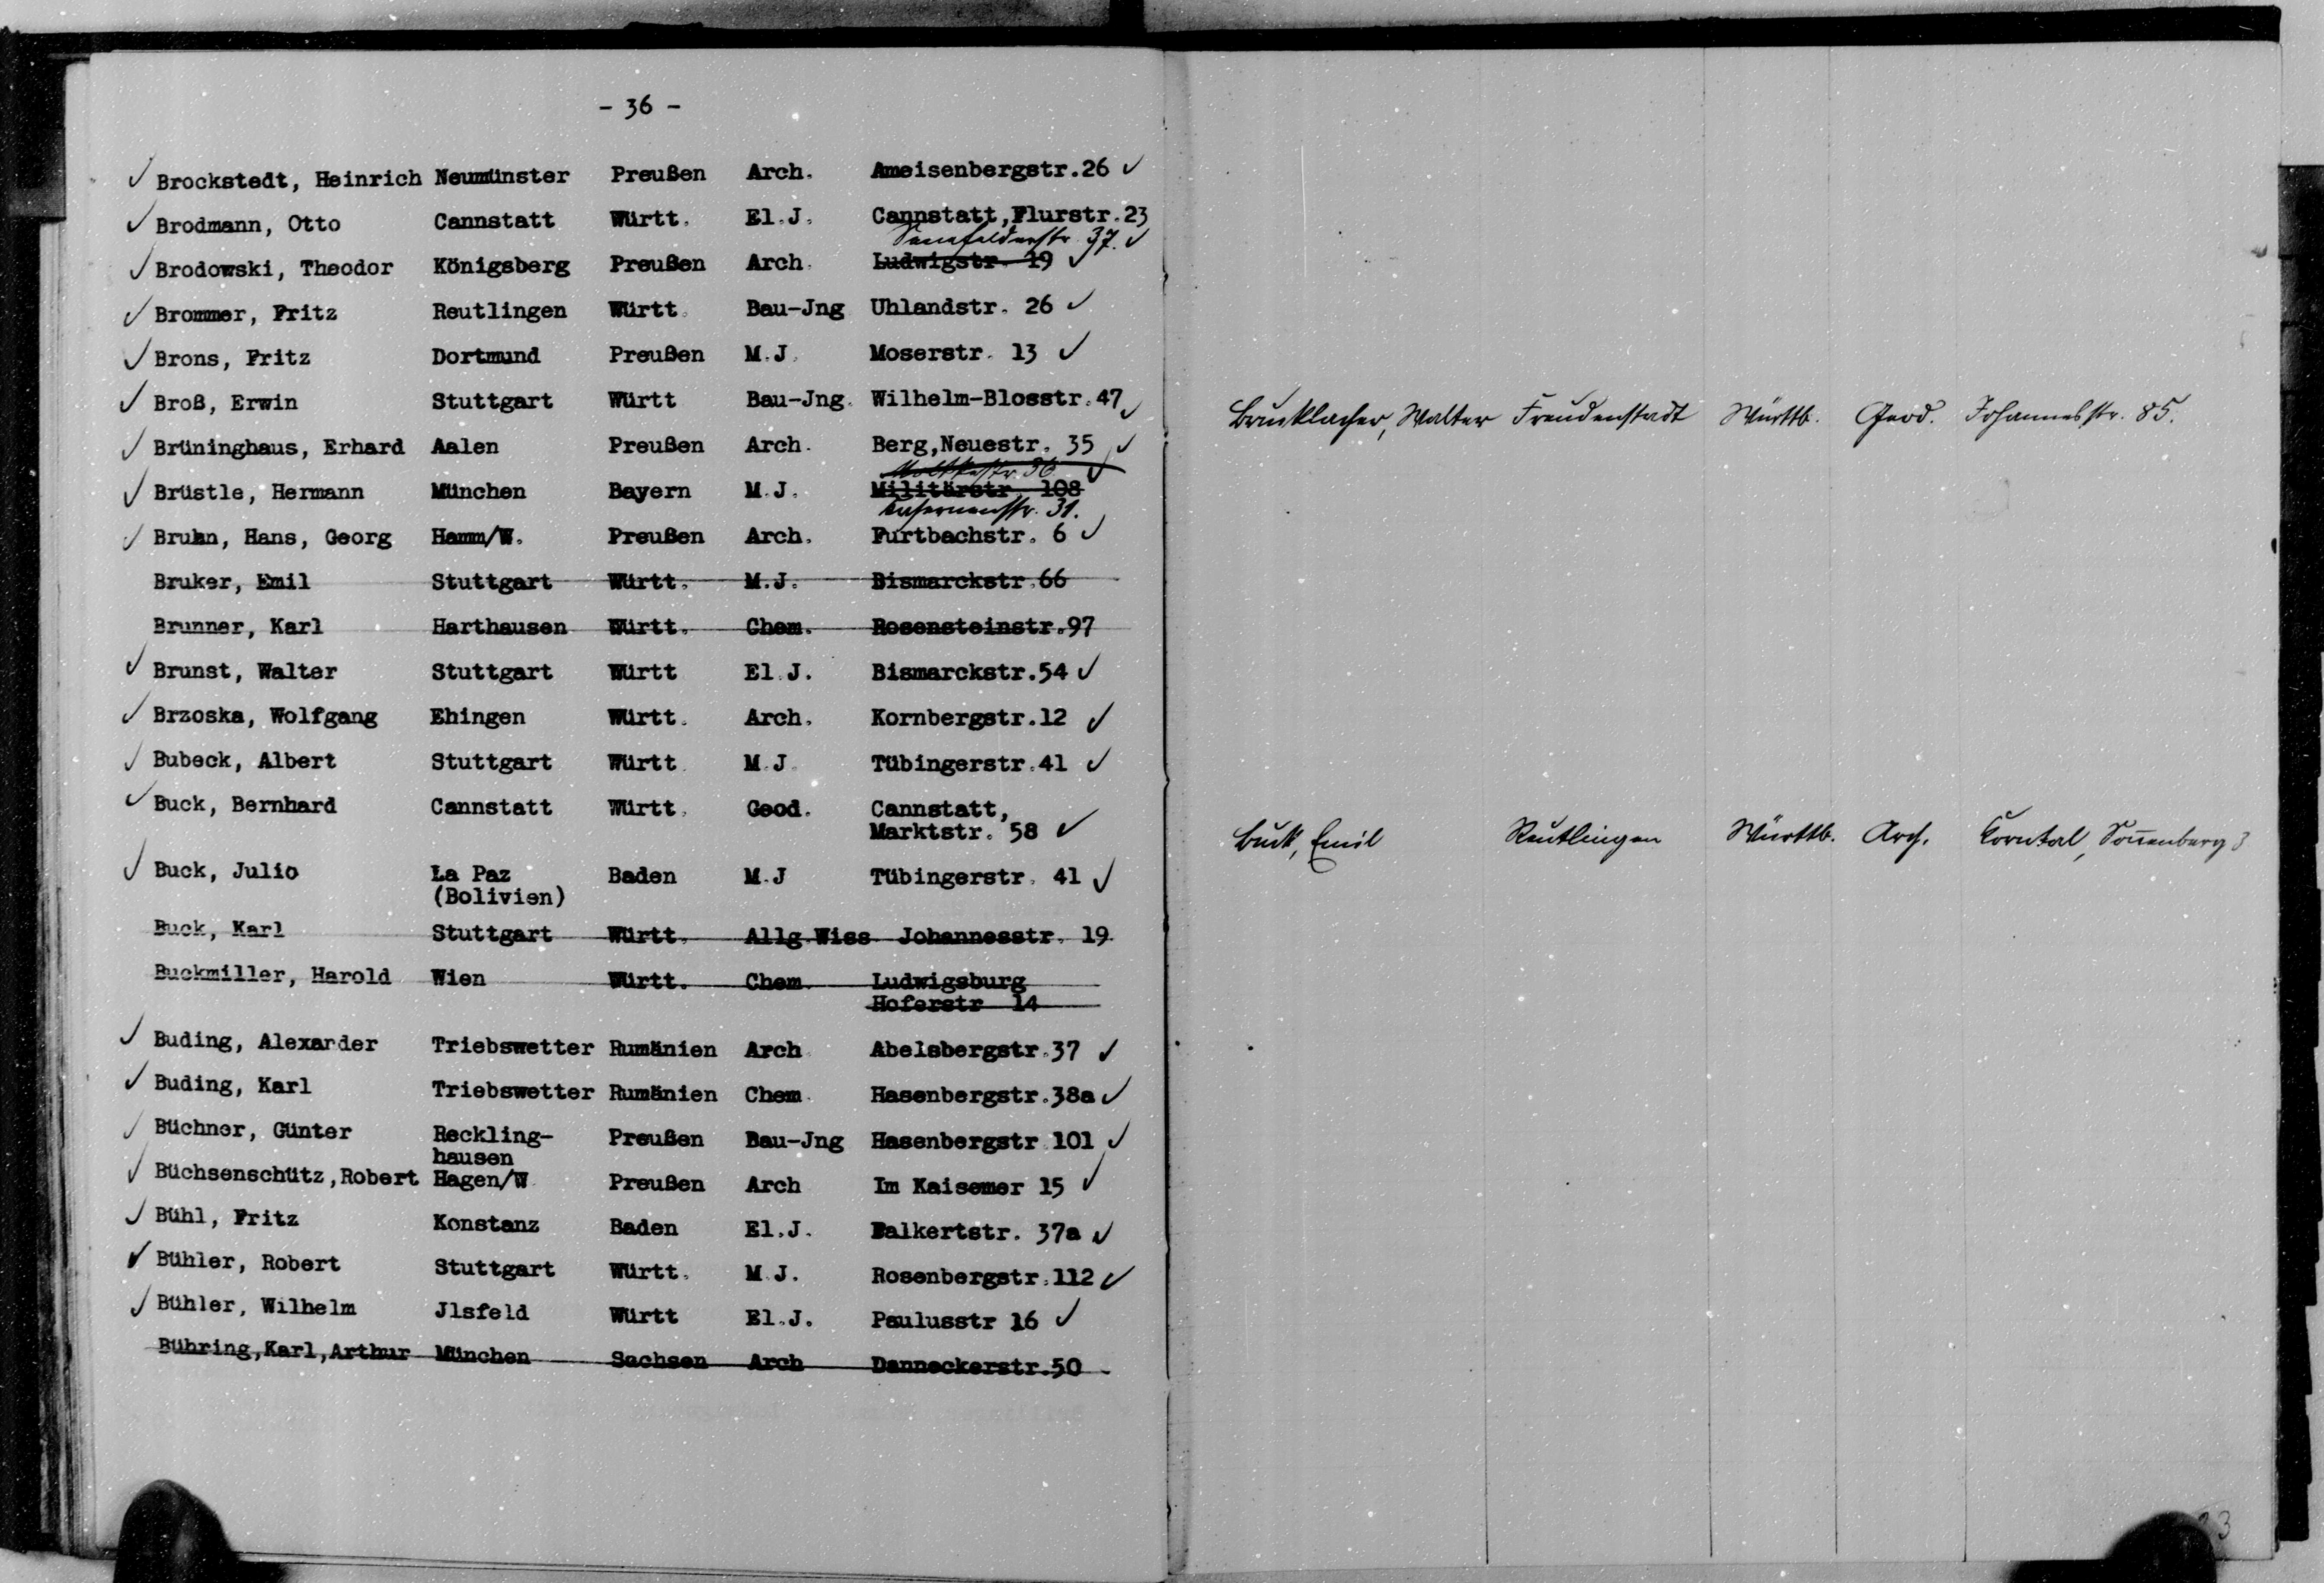 - 36 -
Brockstedt, Heinrich Neumünster Preußen Arch. Ameisenbergstr.26
Brodmann, Otto Cannstatt Württ. El.J. Cannstatt,Flurstr.23
Senefelderstr. 37.
Brodowski, Theodor Königsberg Preußen Arch. Ludwigstr. 19
Brommer, Fritz Reutlingen Württ. Bau-Jng Uhlandstr. 26
Brons, Fritz Dortmund Preußen M.J. Moserstr. 13
Broß, Erwin Stuttgart Württ Bau-Jng. Wilhelm-Blosstr.47
Brüninghaus, Erhard Aalen Preußen Arch. Berg,Neuestr. 35
Moltkestr. 36
Brüstle, Hermann München Bayern M.J. Militärstr. 108
Kasernenstr. 31.
Bruhn, Hans, Georg Hamm/W. Preußen Arch. Furtbachstr. 6
Bruker, Emil Stuttgart Württ. M.J. Bismarckstr.66
Brunner, Karl Harthausen Württ. Chem. Rosensteinstr.97
Brunst, Walter Stuttgart Württ El.J. Bismarckstr.54
Brzoska, Wolfgang Ehingen Württ. Arch. Kornbergstr.12
Bubeck, Albert Stuttgart Württ. M.J. Tübingerstr.41
Buck, Bernhard Cannstatt Württ. Geod. Cannstatt,
Marktstr. 58
Buck, Julio La Paz Baden M.J Tübingerstr. 41
(Bolivien)
Buck, Karl Stuttgart Württ. Allg.Wiss Johannesstr. 19
Buckmiller, Harold Wien Württ. Chem. Ludwigsburg
Hoferstr 14
Buding, Alexander Triebswetter Rumänien Arch Abelsbergstr.37
Buding, Karl Triebswetter Rumänien Chem. Hasenbergstr.38a
Büchner, Günter Reckling- Preußen Bau-Jng Hasenbergstr 101
hausen
Büchsenschütz,Robert Hagen/W. Preußen Arch Im Kaisemer 15
Bühl, Fritz Konstanz Baden El.J. Falkertstr. 37a
Bühler, Robert Stuttgart Württ. M.J. Rosenbergstr.112
Bühler, Wilhelm Jlsfeld Württ El.J. Paulusstr 16
Bühring,Karl,Arthur München Sachsen Arch Danneckerstr.50
Brucklacher, Walter Freudenstadt Württb. Geod. Johannesstr. 85.
Buck, Emil Reutlingen Württb. Arch. Korntal, Sonnenberg 3